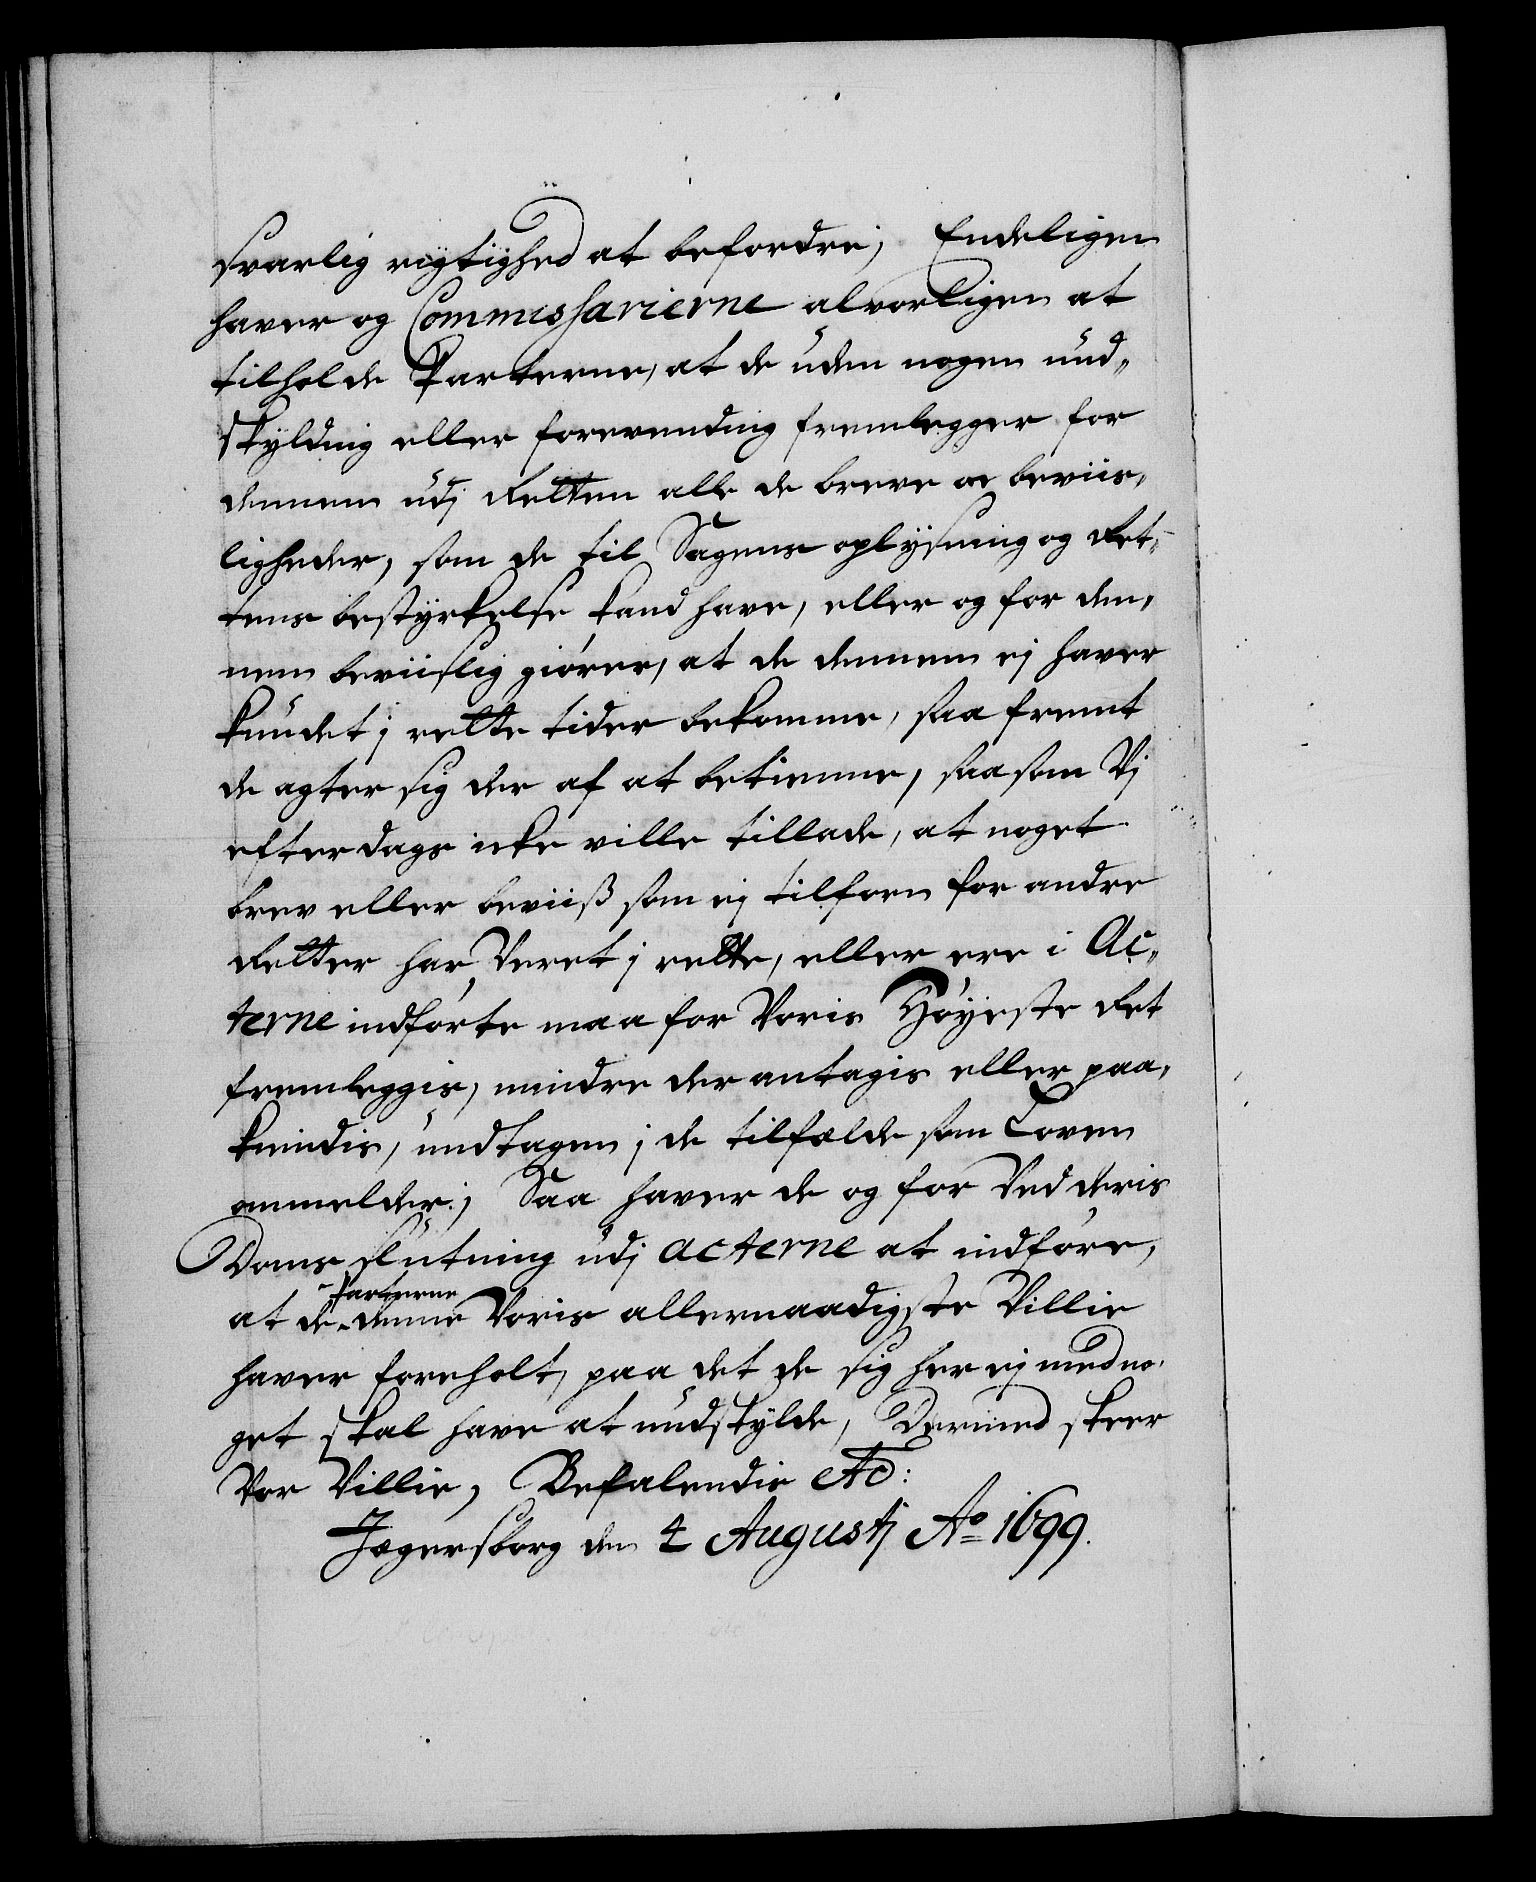 svarlig rigtighed at befordre; Endeligen
haver og Commissarierne alvorligen at
tilholde Parterne, at de uden nogen und„
skylding eller forevending fremlegger for
dennem udj Retten alle de breve oc beviis„
ligheder, som de til Sagens oplysning og Ret„
tens bestyrkelse kand have, eller og for den„
nem beviislig giörer, at de dennem ej haver
kundet j rette tider bekomme, saa fremt
de agter sig der af at betienne, saasom Vj
efter dags icke ville tillade, at noget
brev eller beviiß som ej tilforn for andre
Retter har Veret j rette, eller ere i Ac„
terne indförte maa for Voris Höyeste Ret
fremleggis, mindre der antagis eller paa„
kiendis, undtagen j de tilfælde som Loven
ommelder; Saa haver de og for Ved deris
Doms slutning udj acterne at indföre,
at de Parterne denne Voris allernaadigste Villie
haver foreholt, paa det de sig her ej med no„
get skal have at undskylde, Dermed skeer
Vor Villie, Befalendis etc:
Jegersborg den 4 Augustj Ao 1699.